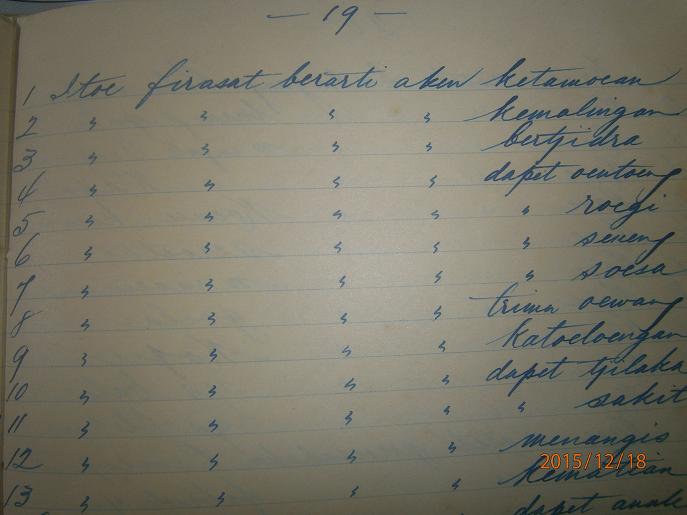 — 19 —
1 Itoe firasat berarti aken ketamoean
2 " " " " kemalingan
3 " " " " bertjidra
4 " " " " dapet oentoeng
5 " " " " " roegi
6 " " " " " seneng
7 " " " " " soesa
8 " " " " trima oewang
9 " " " " katoeloengan
10 " " " " dapet tjilaka
11 " " " " " sakit
12 " " " " menangis
13 " " " " kematian
dapet anak
2015/12/18